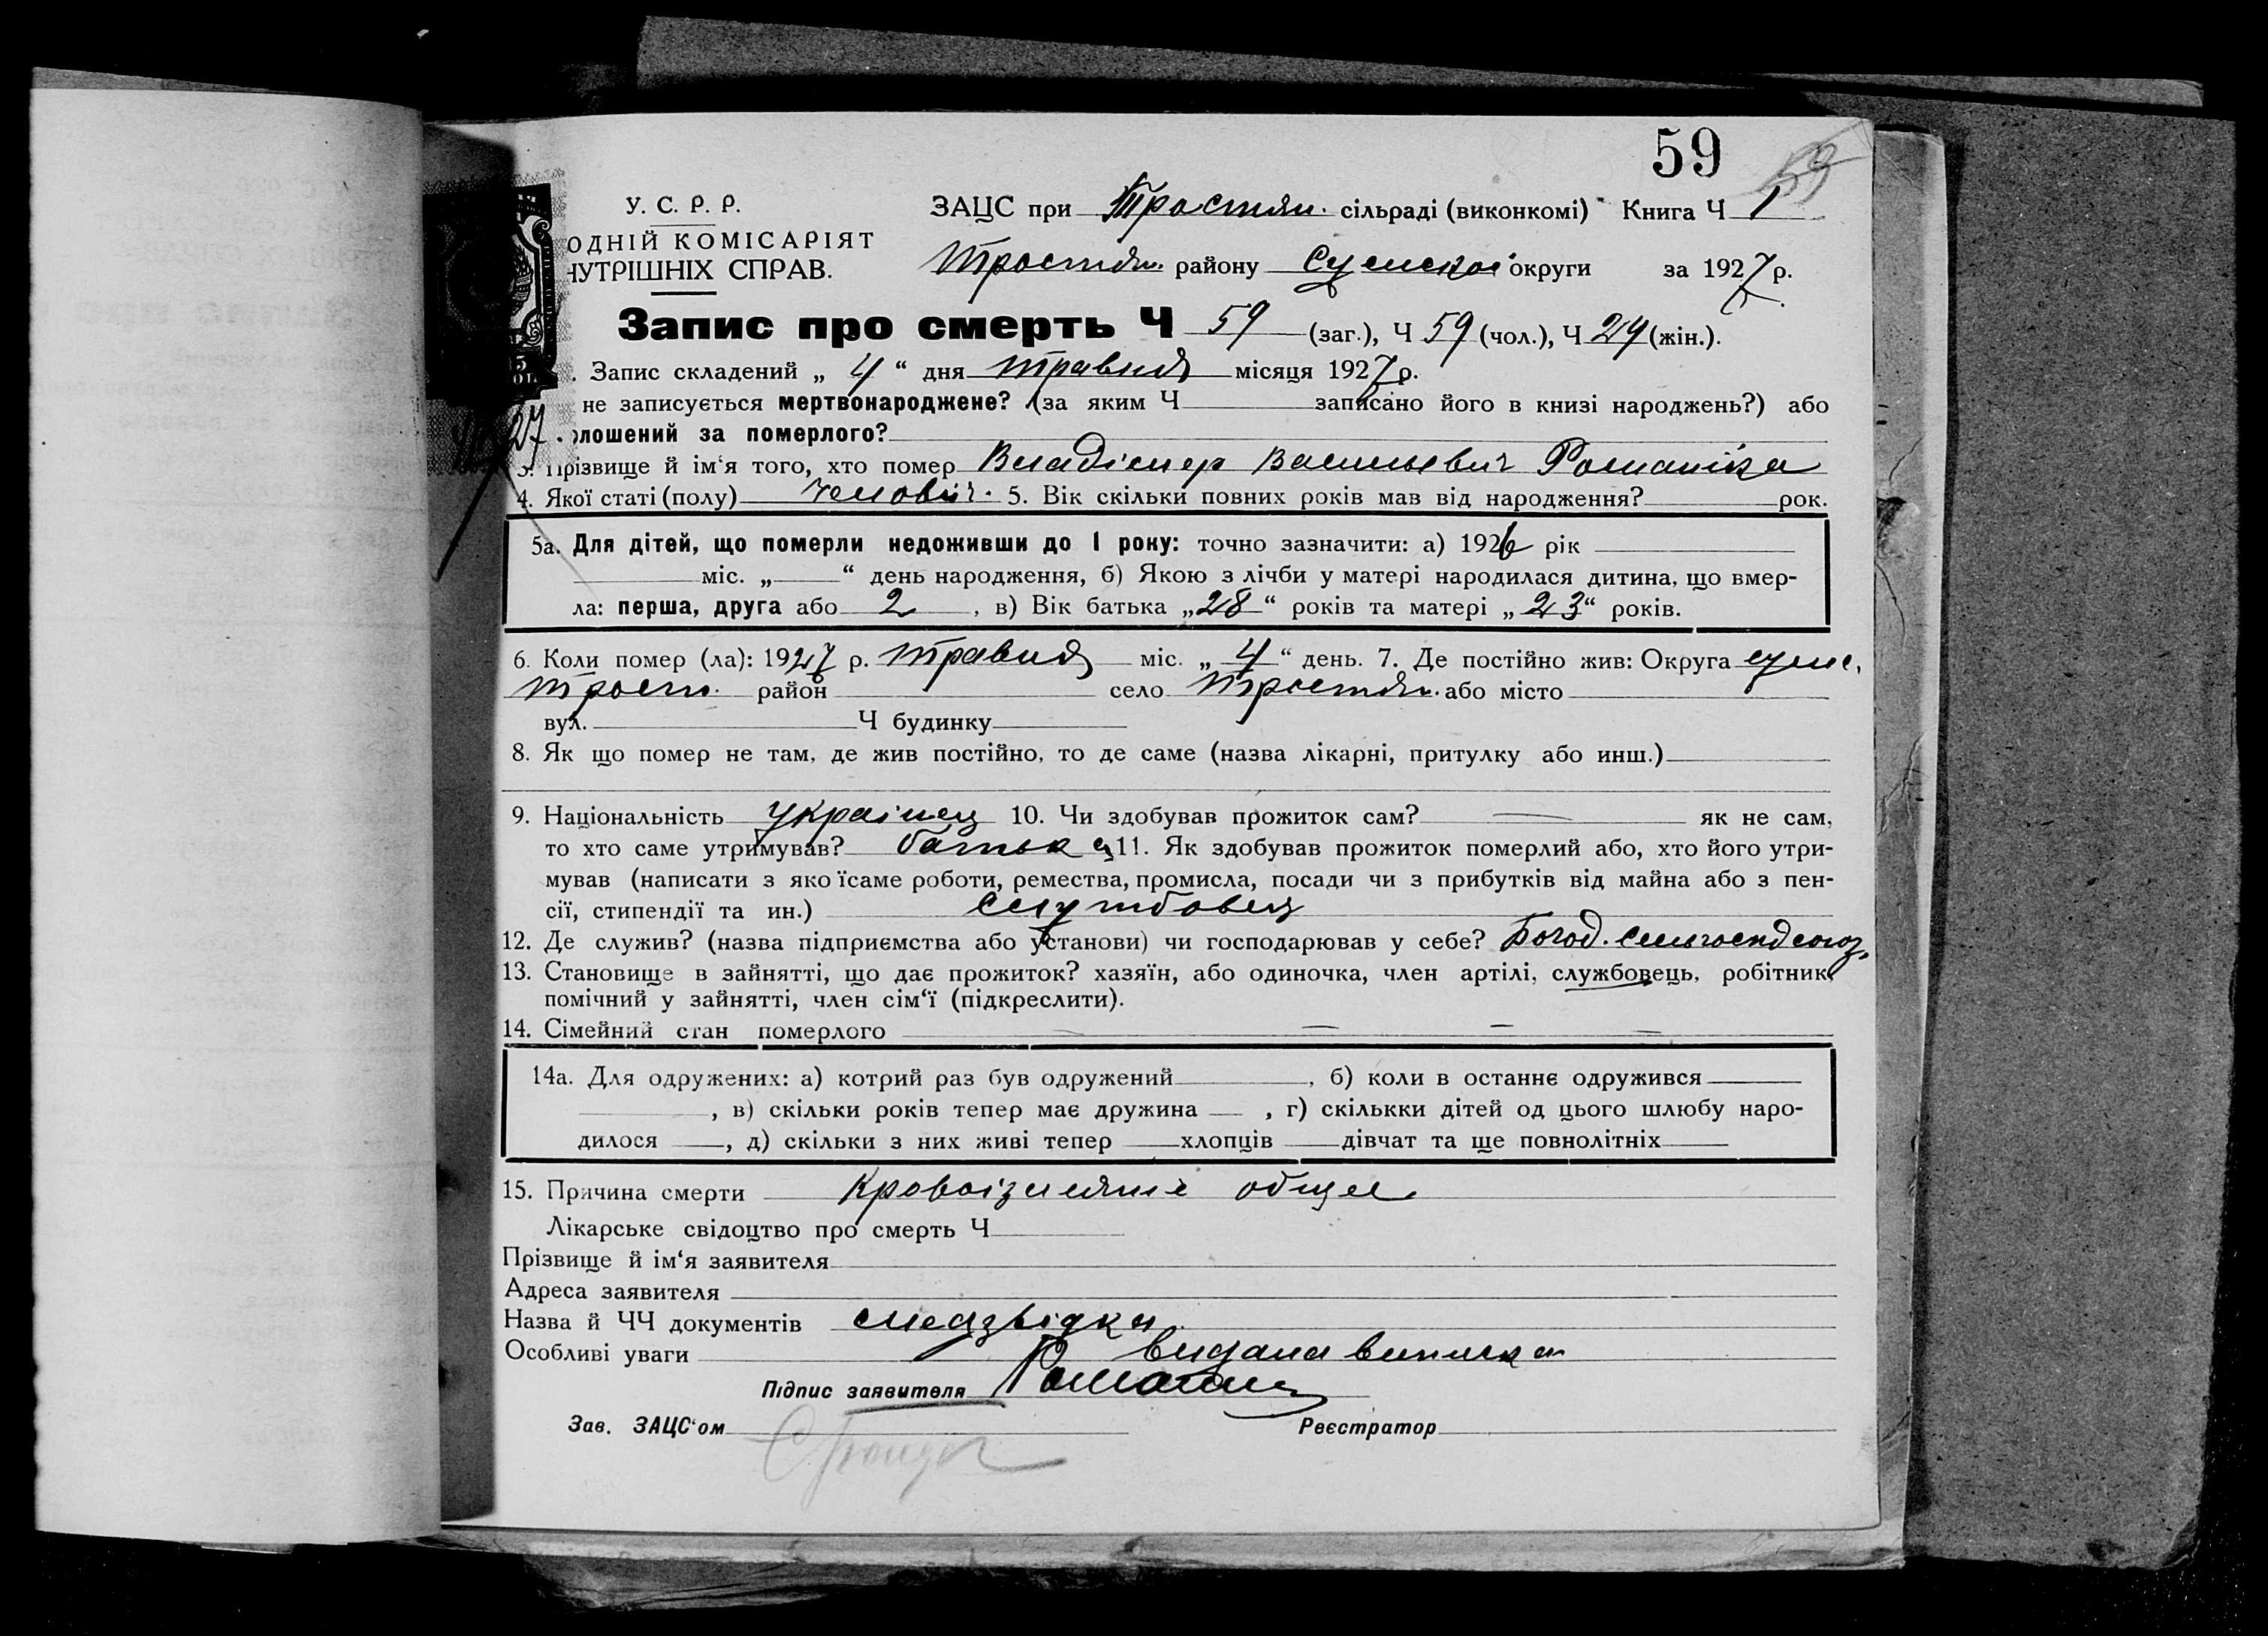 59
59
У. С. Р. Р.
ОДНІЙ КОМІСАРІЯТ
НУТРІШНІХ СПРАВ.
ЗАЦС при Тростян. сільраді (виконкомі) Книга Ч 1
Тростян. району Сумської округи за 1927 р.
Запис про смерть Ч 59 (заг.), Ч 59 (чол.), Ч 24 (жін.).
. Запис складений „ 4 “ дня травня місяця 1927 р.
не записується мертвонароджене? (за яким Ч записано його в книзі народжень?) або
олошений за померлого?
3. Прізвище й ім‘я того, хто помер Владімер Васильевич Романіка
4. Якої статі (полу) Человіч. 5. Вік скільки повних років мав від народження? рок.
5а. Для дітей, що померли недоживши до 1 року: точно зазначити: а) 1926 рік
міс. „ “ день народження, б) Якою з лічби у матері народилася дитина, що вмер-
ла: перша, друга або 2, в) Вік батька „28“ років та матері „23“ років.
6. Коли помер (ла): 1927 р. травня міс. „ 4 “ день. 7. Де постійно жив: Округа сумс,
трост. район село тростян. або місто
вул. Ч будинку
8. Як що помер не там, де жив постійно, то де саме (назва лікарні, притулку або инш.)
9. Національність украінец 10. Чи здобував прожиток сам? — як не сам,
то хто саме утримував? батько 11. Як здобував прожиток померлий або, хто його утри-
мував (написати з якоїсаме роботи, ремества, промисла, посади чи з прибутків від майна або з пен-
сії, стипендії та ин.) Службовец
12. Де служив? (назва підприємства або установи) чи господарював у себе? Богод. сильгоспдсоюз.
13. Становище в зайнятті, що дає прожиток? хазяїн, або одиночка, член артілі, службовець, робітник
помічний у зайнятті, член сім‘ї (підкреслити).
14. Сімейний стан померлого — — — —
14а. Для одружених: а) котрий раз був одружений , б) коли в останнє одружився
, в) скільки років тепер має дружина , г) скількки дітей од цього шлюбу наро-
дилося , д) скільки з них живі тепер хлопців дівчат та ще повнолітніх
15. Причина смерти Кровоізлияние общее
Лікарське свідоцтво про смерть Ч
Прізвище й ім‘я заявителя
Адреса заявителя
Назва й ЧЧ документів медзвідка
Особливі уваги видана виписка
Підпис заявителя
Зав. ЗАЦС‘ом Реєстратор